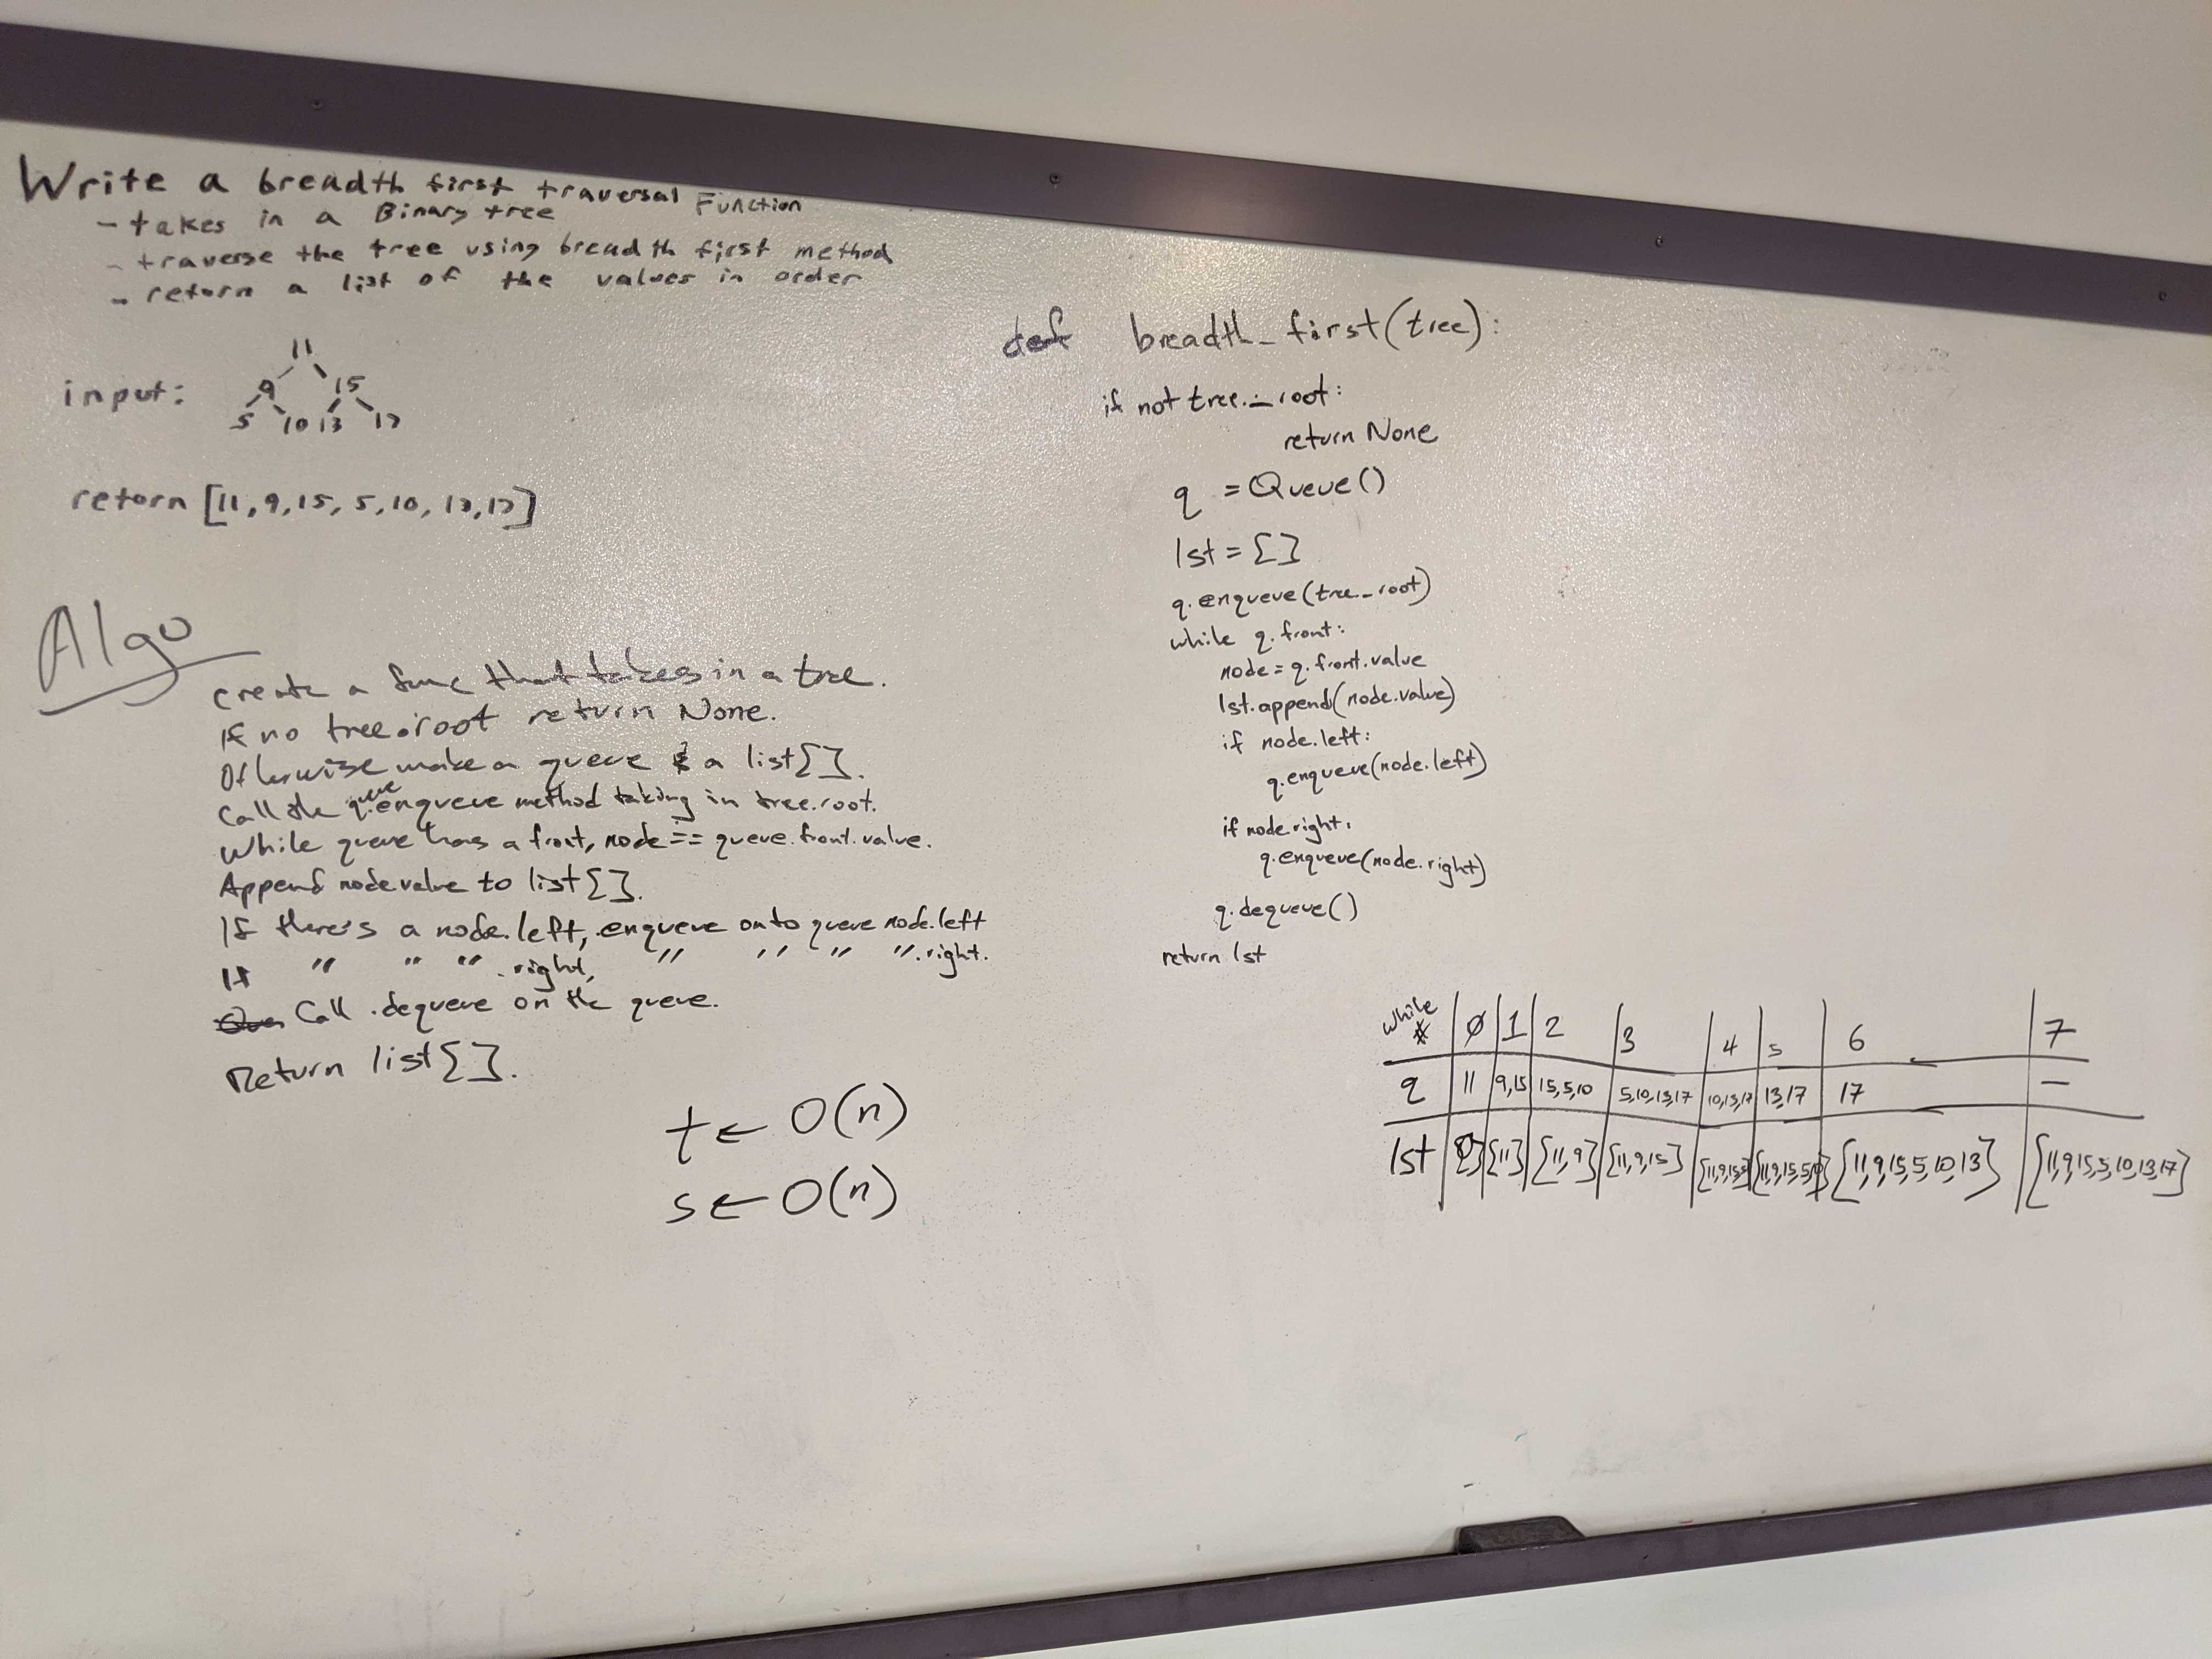 Write a breadth first traversal Function
- takes in a Binary tree
- traverse the tree using breadth first method
- return a list of the values in order
input:
11
9 15
5 10 13 17
return [11, 9, 15, 5, 10, 13, 17]
Algo
create a func that takes in a tree.
If no tree.root return None.
Otherwise make a queue & a list[].
Call the queue.enqueue method taking in tree.root.
While queue has a front, node == queue.front.value.
Append node value to list[].
If there's a node.left, enqueue onto queue node.left
If " " " .right, " " " ".right.
Call .dequeue on the queue.
Return list[].
t ← O(n)
s ← O(n)
def breadth_first(tree):
if not tree._root:
return None
q = Queue()
lst = []
q.enqueue(tree._root)
while q.front:
node = q.front.value
lst.append(node.value)
if node.left:
q.enqueue(node.left)
if node.right:
q.enqueue(node.right)
q.dequeue()
return lst
while # 0 1 2 3 4 5 6 7
q 11 9,15 15,5,10 5,10,13,17 10,13,17 13,17 17 —
lst [] [11] [11,9] [11,9,15] [11,9,15,5] [11,9,15,5,10] [11,9,15,5,10,13] [11,9,15,5,10,13,17]